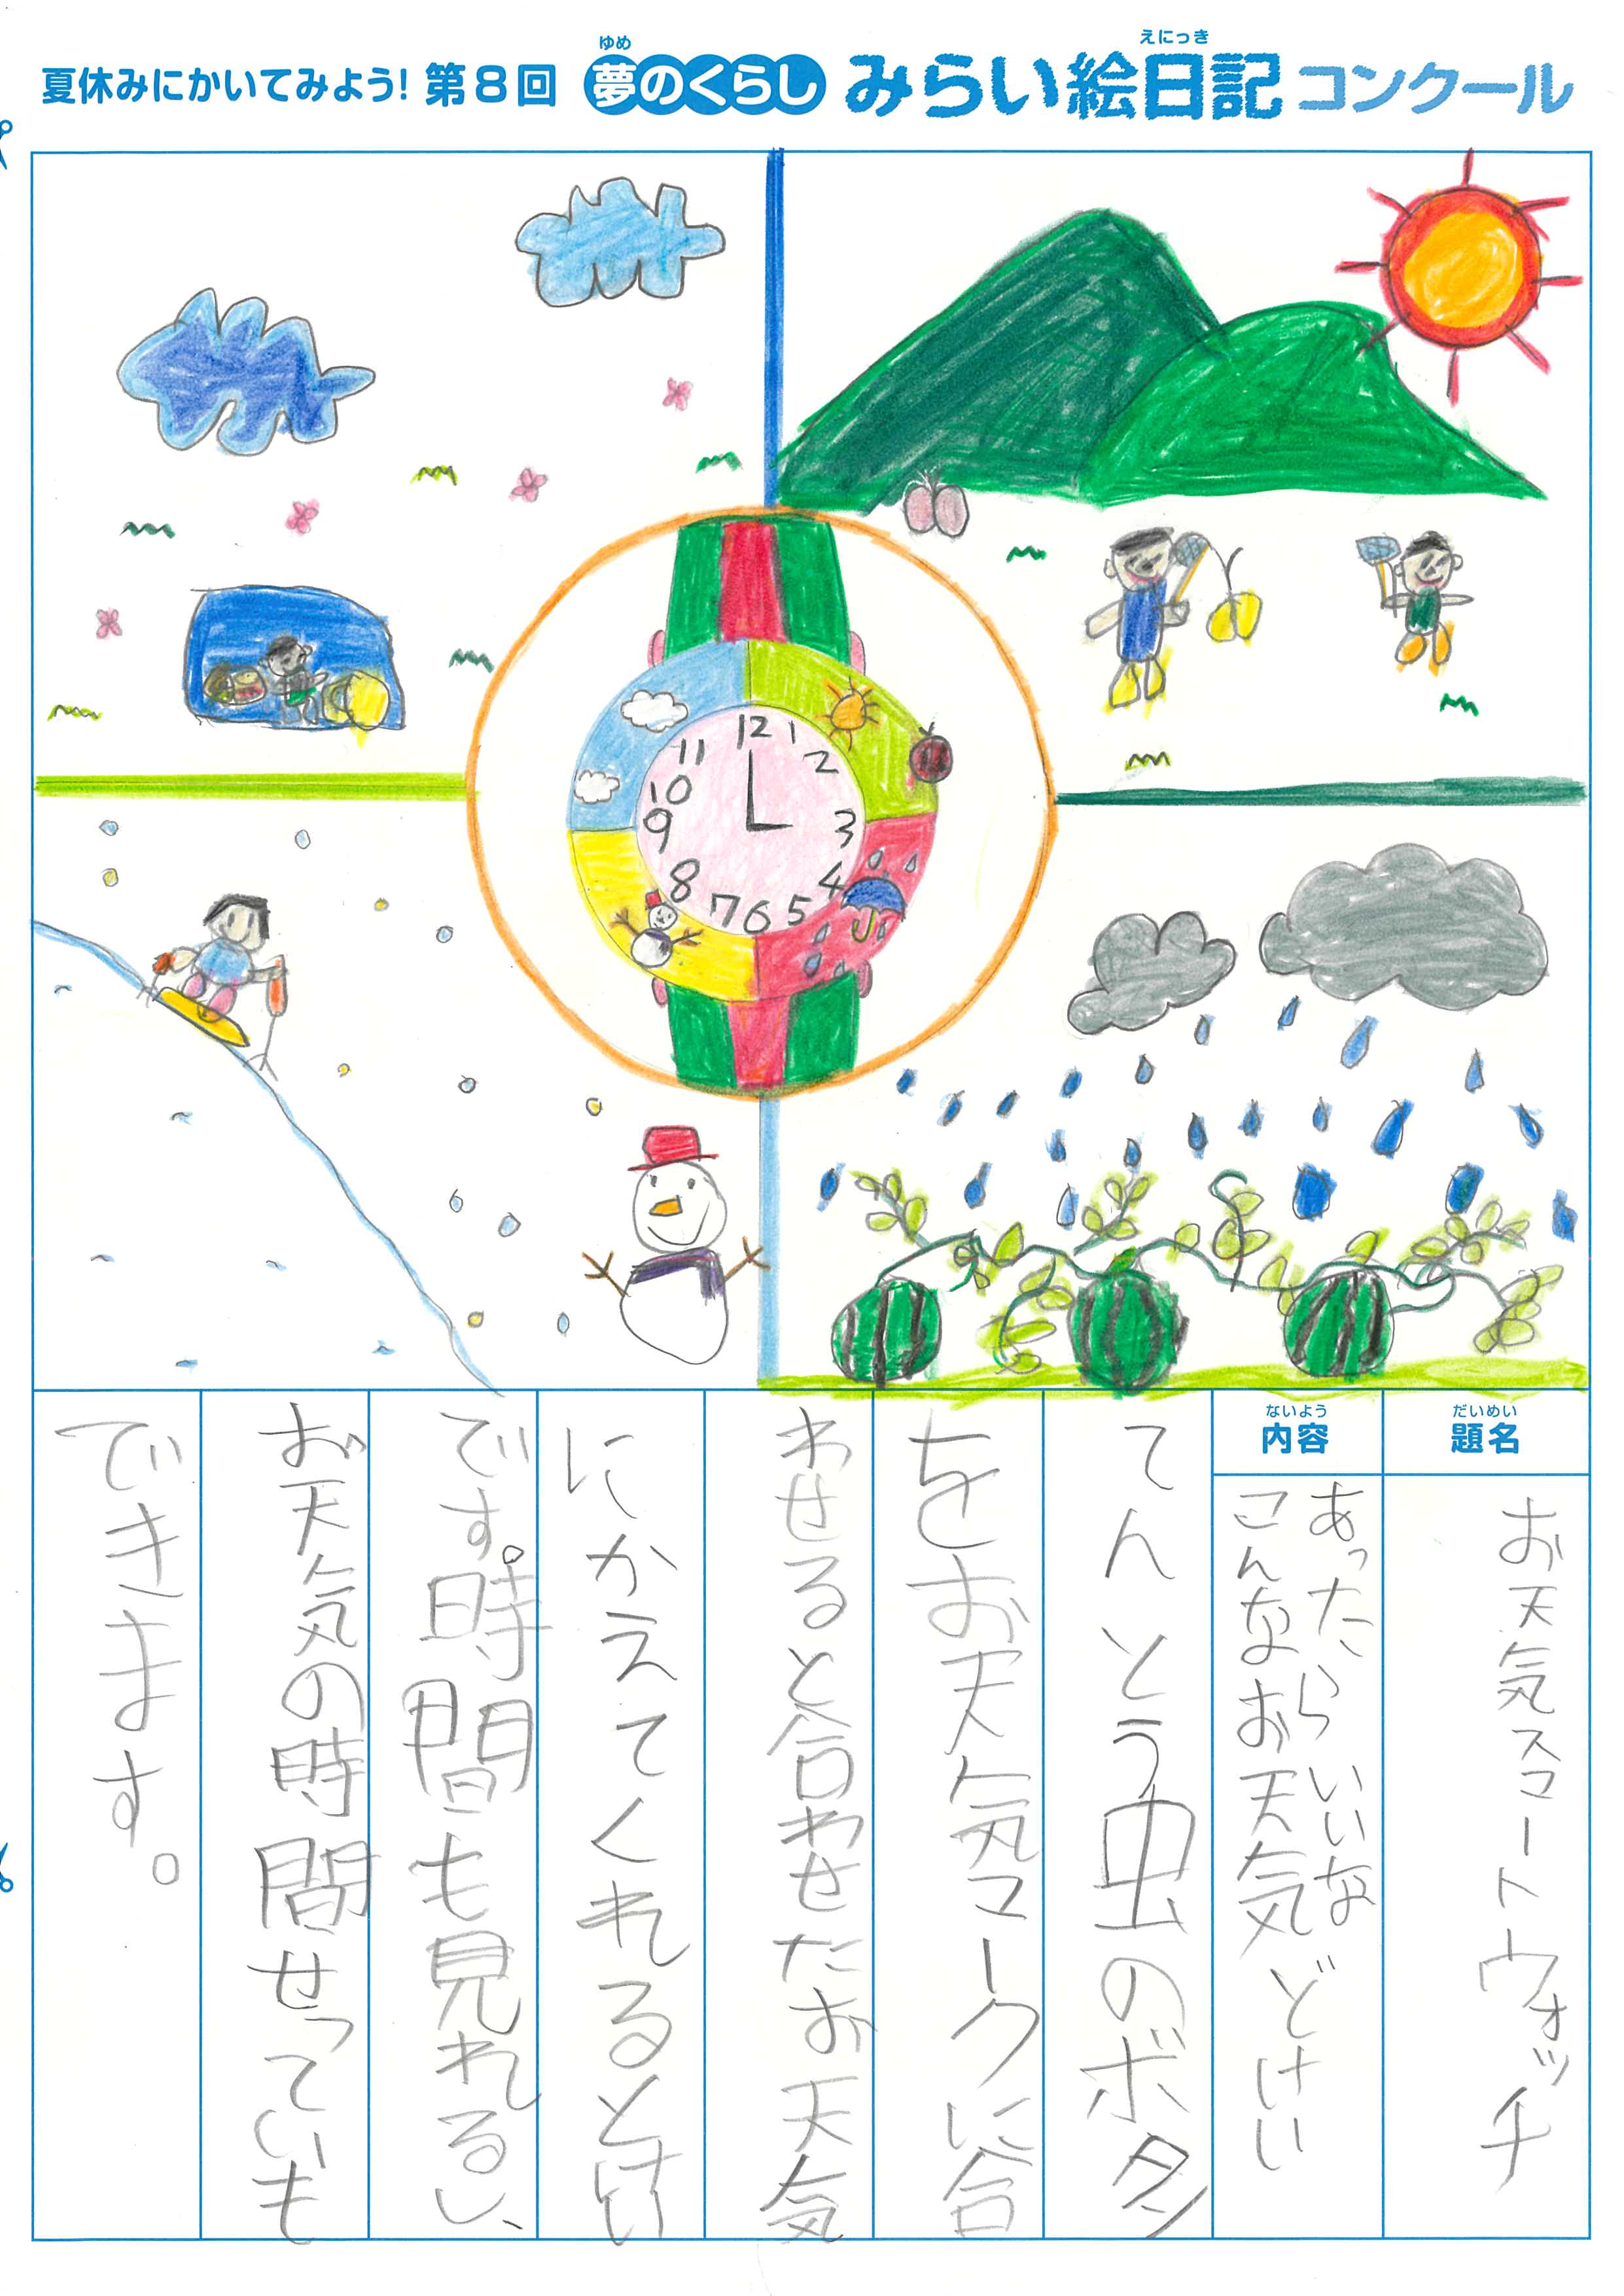 夏休みにかいてみよう! 第8回 夢のくらし みらい絵日記コンクール
ゆめ
えにっき
12
1
2
3
4
5
6
7
8
9
10
11
だいめい
題名
お天気スマートウォッチ
ないよう
内容
あったらいいな
こんなお天気どけい
てんとう虫のボタン
をお天気マークに合
わせると合わせたお天気
にかえてくれるとけい
です。時間も見れるし、
お天気の時間せっていも
できます。